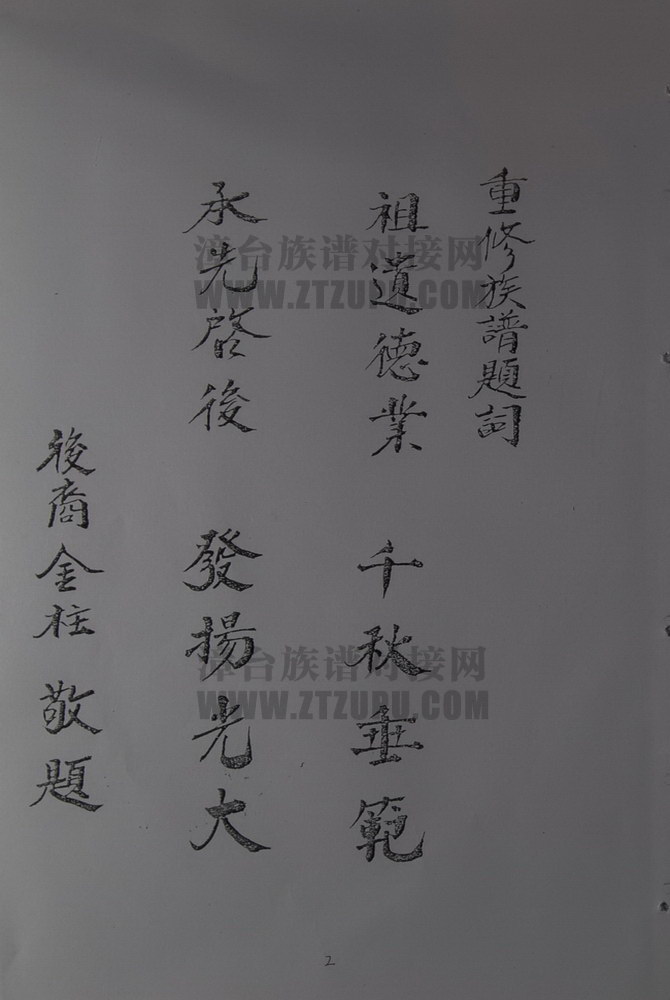 重修族譜題詞
祖遺德業 千秋垂範
承先啓後 發揚光大
後裔金柱 敬題
漳台族谱对接网
WWW.ZTZUPU.COM
漳台族谱对接网
WWW.ZTZUPU.COM
2